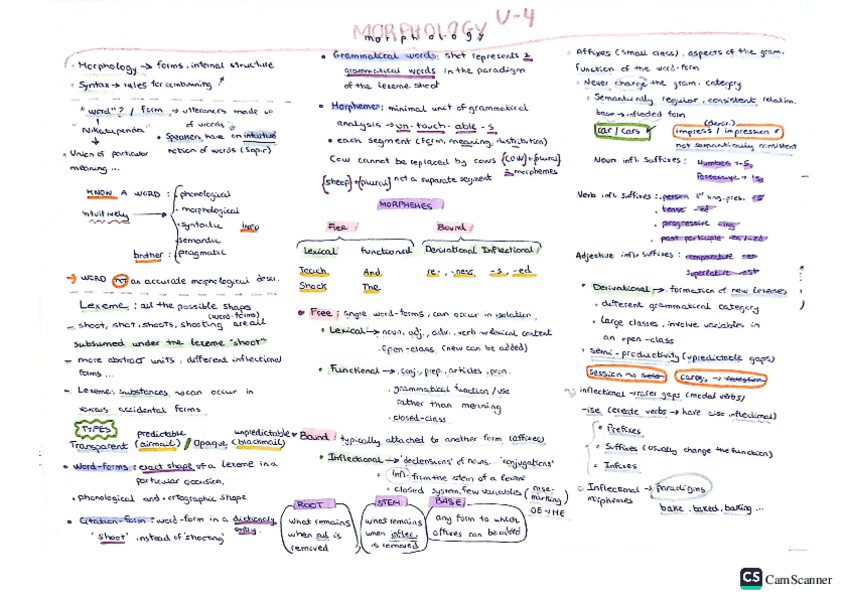 MORPHOLOGY U-4
morphology
Morphology → forms, internal structure
Syntax → rules for combining
"word"? / form → utterances made up
of words
Speakers have an intuitive
notion of words (Sapir)
Union of particular
meaning ...
KNOW A WORD:
intuitively →
phonological
morphological
Syntactic INFO
semantic
pragmatic
brother:
→ WORD not an accurate morphological descr.
Lexeme: all the possible shapes
(word-forms)
- shoot, shot, shoots, shooting are all
subsumed under the lexeme "shoot"
- more abstract units, different inflectional
forms ...
- Lexeme, substances can occur in
various accidental forms
TYPES predictable unpredictable
Transparent (airmail) / Opaque (blackmail)
• Word-forms: exact shape of a lexeme in a
particular occasion.
• phonological and ortographic shape
• Citation-form: word-form in a dictionary
'shoot' instead of 'shooting' only.
• Grammatical words: shot represents 2
grammatical words in the paradigm
of the lexeme shoot
• Morpheme: minimal unit of grammatical
analysis → un-touch-able-s
• each segment (form, meaning, distribution)
Cow cannot be replaced by cows {cow}+{plural}
2 morphemes
{sheep}+{plural} not a separate segment
MORPHEMES
Free Bound
Lexical functional Derivational Inflectional
Touch And re-, -ness, -s, -ed
Shock The
• Free: single word-forms, can occur in isolation
• Lexical → noun, adj., adv., verb w lexical content
• open-class (new can be added)
• Functional → conj., prep., articles, pron.
• grammatical function/use
rather than meaning
• closed-class
• Bound: typically attached to another form (affixes)
• Inflectional → 'declensions' of nouns, 'conjugations'
• infl. from the stem of a lexeme
• closed system, few variables
marking
OE → ME
ROOT
what remains
when all is
removed
STEM
what remains
when inflec.
is removed
BASE
any form to which
affixes can be added
• Affixes (small class), aspects of the gram.
function of the word-form
• Never change the gram. category
• Semantically regular, consistent relation.
base → inflected form
(deriv.)
car / cars impress / impression
not semantically consistent
Noun infl. suffixes: Number → -s
Possessive → 's
Verb infl. suffixes: person 3rd sing. pres. -s
• tense -ed
• progressive -ing
• past participle -en / -ed
Adjective infl. suffixes: comparative -er
Superlative -est
• Derivational → formation of new lexemes
• different grammatical category
• large classes, involve variables in
an open-class
• semi-productivity (unpredictable gaps)
inflectional → rarer gaps (modal verbs)
-ise (create verbs → have also inflectional)
• Prefixes
• Suffixes (usually change the function)
• Infixes
• Inflectional → paradigms
morphemes
bake, baked, baking ...
CS CamScanner